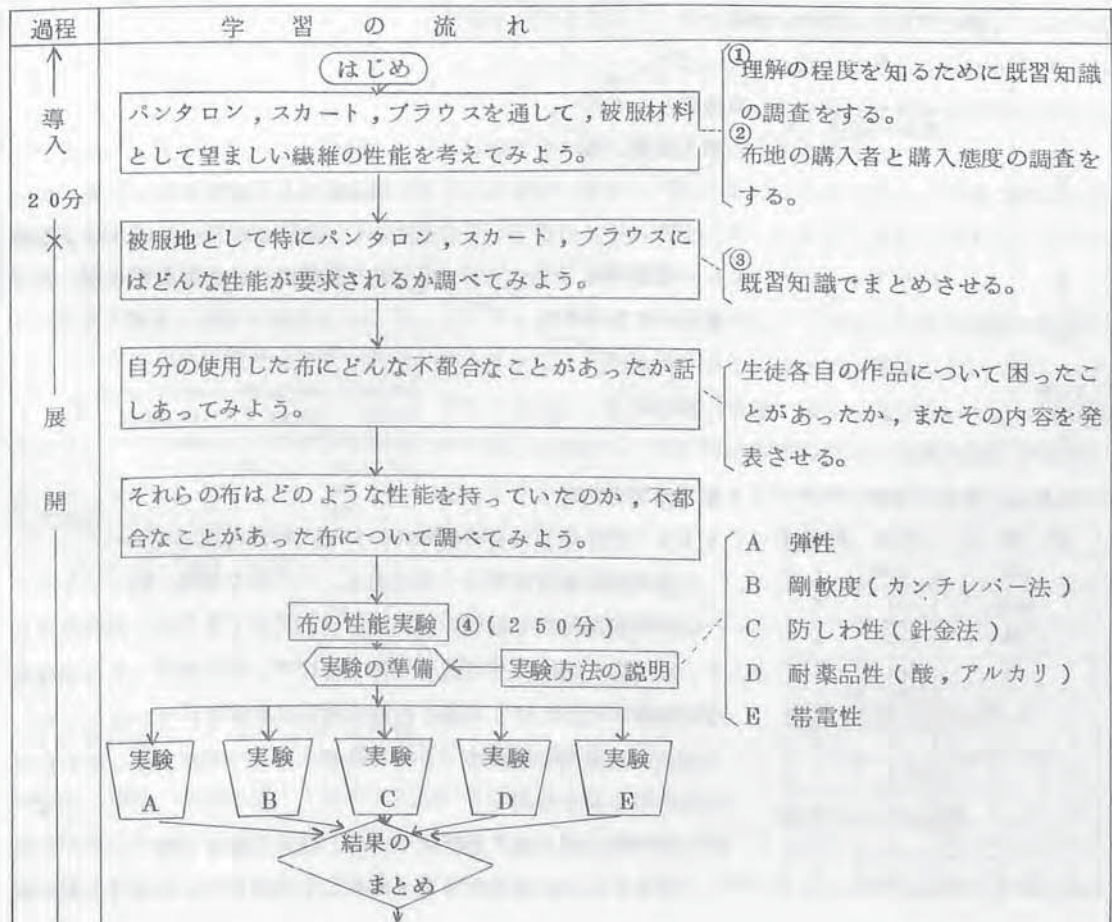 過程
学習の流れ
はじめ
導入
20分
パンタロン，スカート，ブラウスを通して，被服材料
として望ましい繊維の性能を考えてみよう。
①理解の程度を知るために既習知識
の調査をする。
②布地の購入者と購入態度の調査を
する。
被服地として特にパンタロン，スカート，ブラウスに
はどんな性能が要求されるか調べてみよう。
③既習知識でまとめさせる。
展開
自分の使用した布にどんな不都合なことがあったか話
しあってみよう。
生徒各自の作品について困ったこ
とがあったか，またその内容を発
表させる。
それらの布はどのような性能を持っていたのか，不都
合なことがあった布について調べてみよう。
布の性能実験 ④（250分）
実験の準備
実験方法の説明
A 弾性
B 剛軟度（カンチレバー法）
C 防しわ性（針金法）
D 耐薬品性（酸，アルカリ）
E 帯電性
実験
A
実験
B
実験
C
実験
D
実験
E
結果の
まとめ